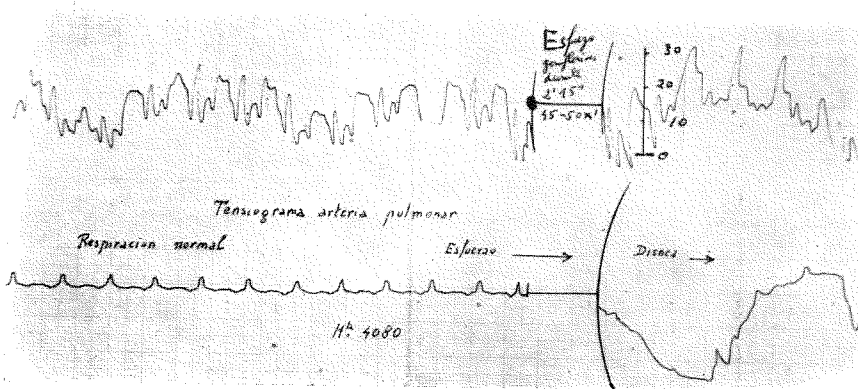 Esfuerzo
durante
2' 15"
45-50 x'
30
20
10
0
Tensiograma arteria pulmonar
Respiracion normal
Esfuerzo
Disnea
Hª 4080